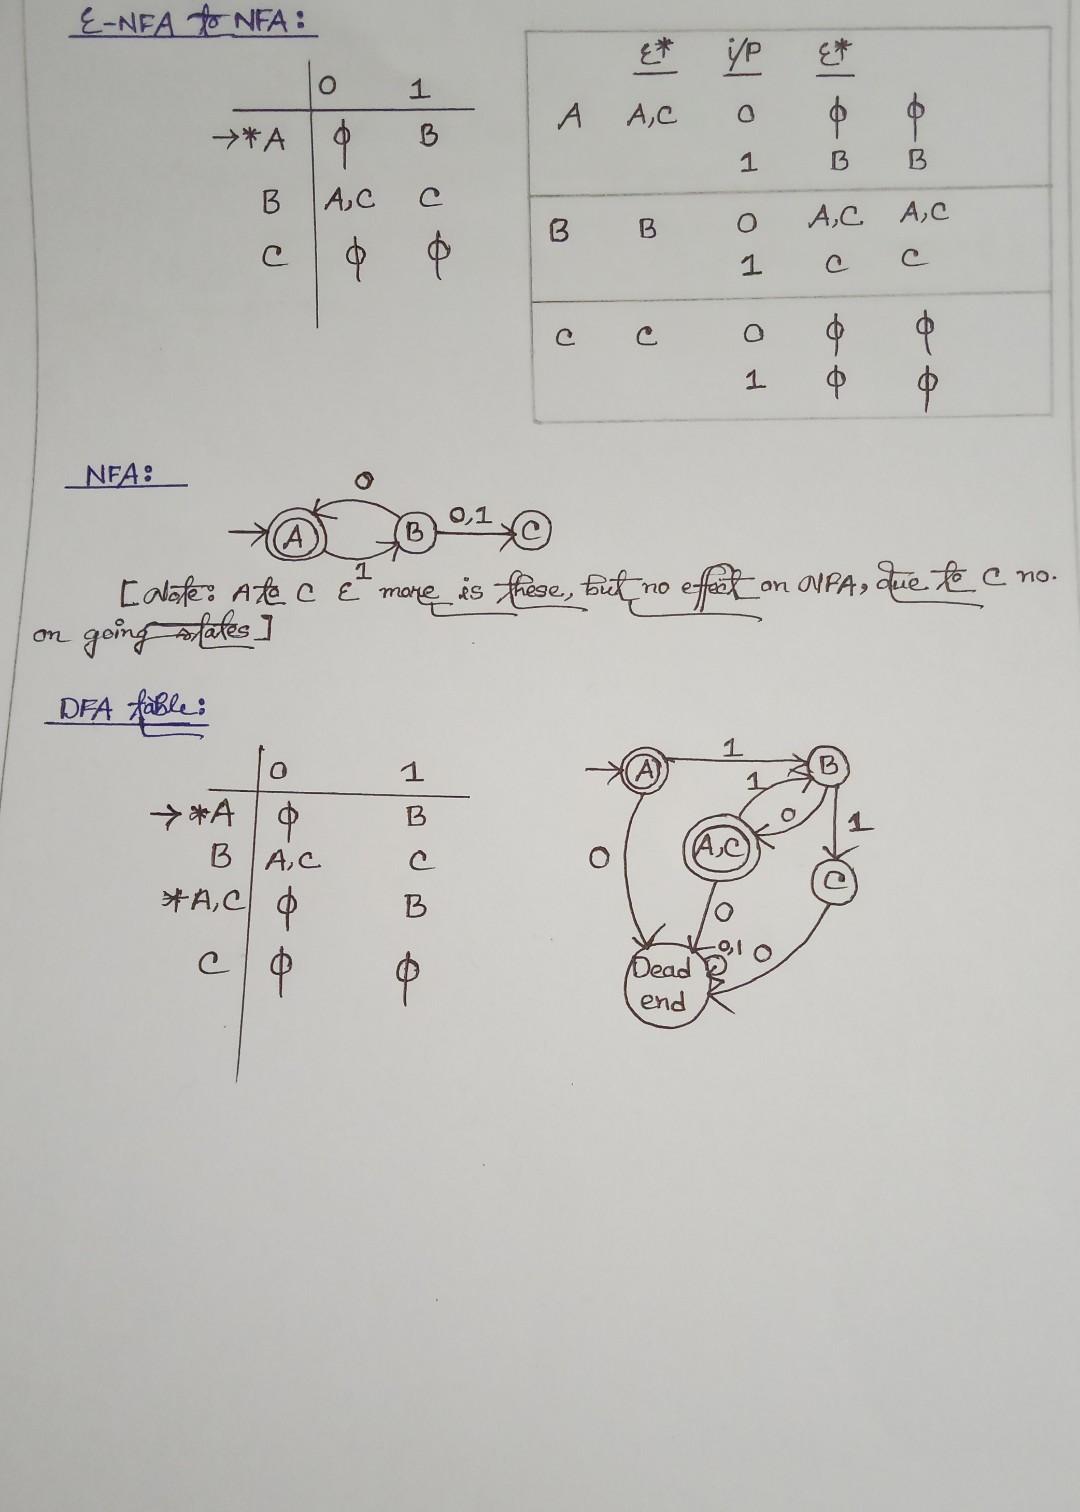 ε-NFA to NFA:
0 1
→*A ϕ B
B A,C C
C ϕ ϕ
ε* i/P ε*
A A,C 0 ϕ ϕ
1 B B
B B 0 A,C A,C
1 C C
C C 0 ϕ ϕ
1 ϕ ϕ
NFA:
0
A B 0,1 C
1
[Note: A to C ε more is these, but no effect on NFA, due to C no.
on going states]
DFA table:
0 1
→*A ϕ B
B A,C C
*A,C ϕ B
C ϕ ϕ
A 1 B
1
0
A,C 1
0 C
0
0,1 0
Dead
end